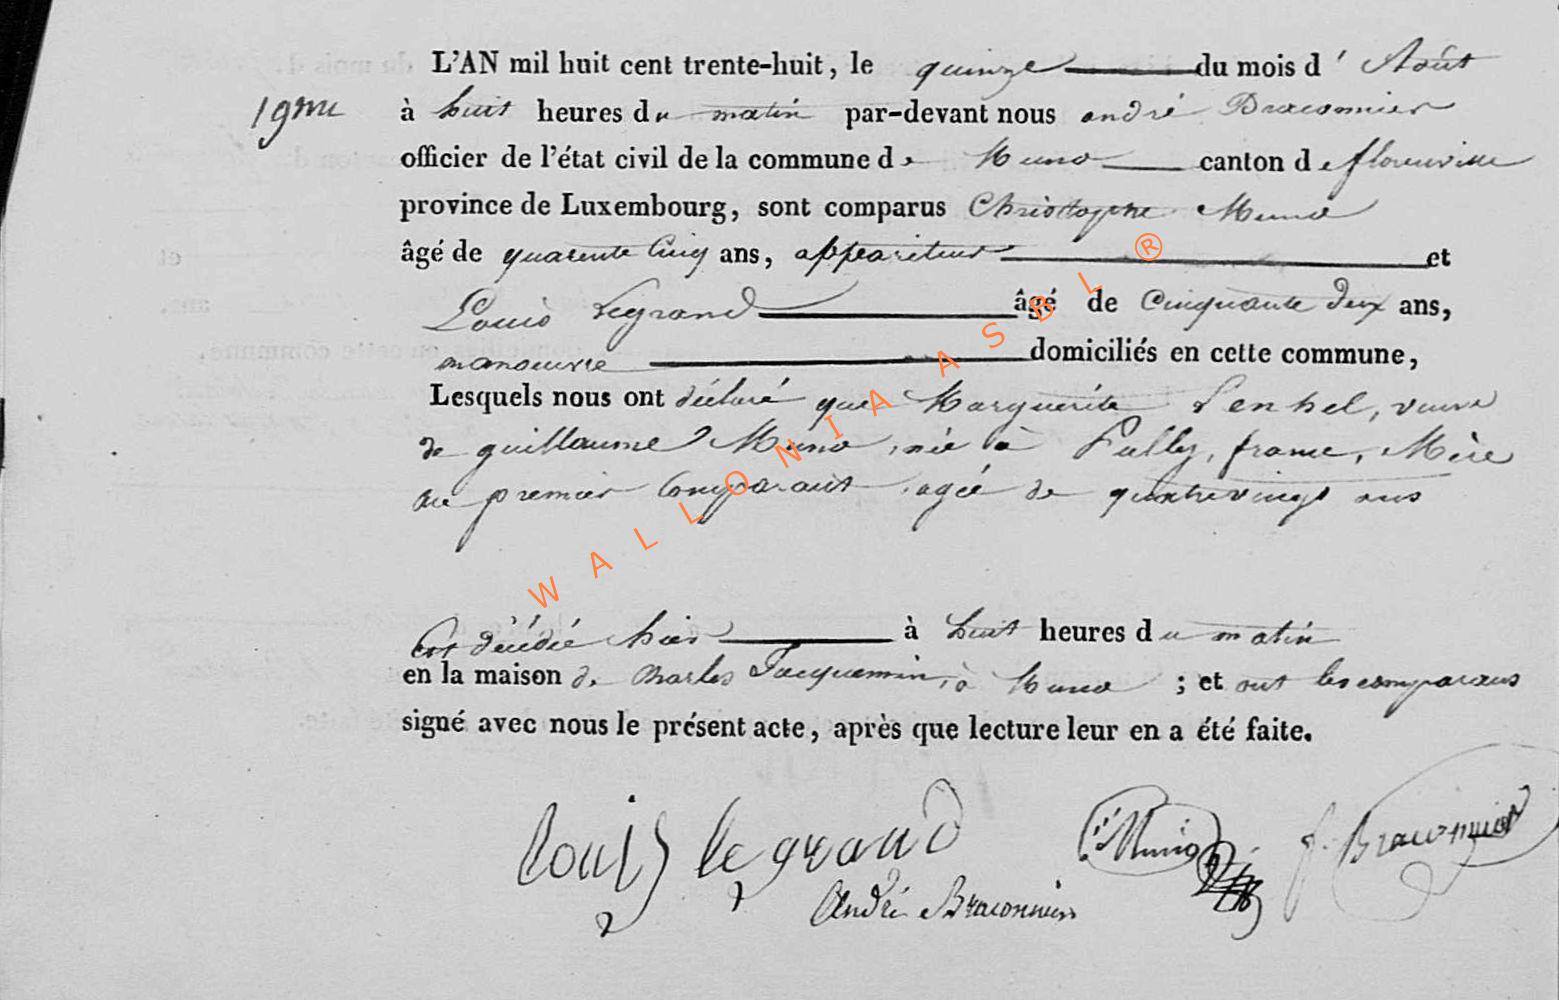 L'AN mil huit cent trente-huit, le quinze du mois d' Août
19me
à huit heures du matin par-devant nous andré Braconnier
officier de l'état civil de la commune de Muno canton de florenville
province de Luxembourg, sont comparus Christophe Muno
âgé de quarente Cinq ans, appariteur et
Louis Legrand âgé de Cinquante deux ans,
manoeuvre domiciliés en cette commune,
Lesquels nous ont déclaré que Marguerite, veuve
de guillaume Muno, née à, france, Mère
du premier Comparant, agée de quatrevingt ans
Est décédée hier à huit heures du matin
en la maison de Charles Jacquemin, à Muno ; et ont les comparans
signé avec nous le présent acte, après que lecture leur en a été faite.
Louis legrand Muno J. Braconnier
André Braconnier
WALLONIA ASBL ®